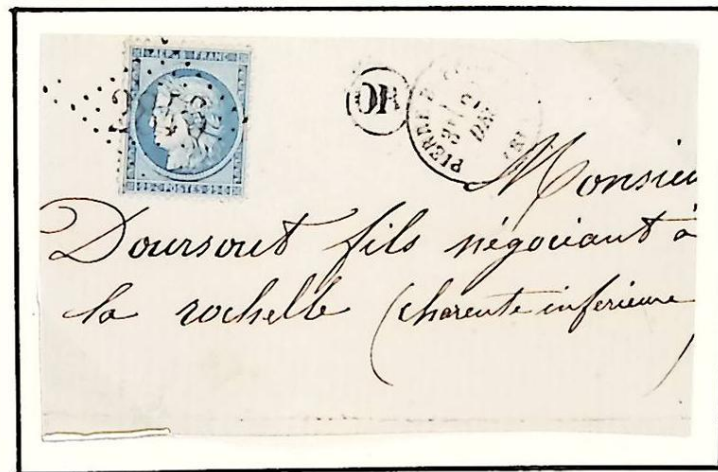 REP. FRANC
25 C POSTES 25 C
OR
PIERRE
3E
21
DEC
Monsieu
Doursout fils négociant à
la rochelle (charente inferieure)